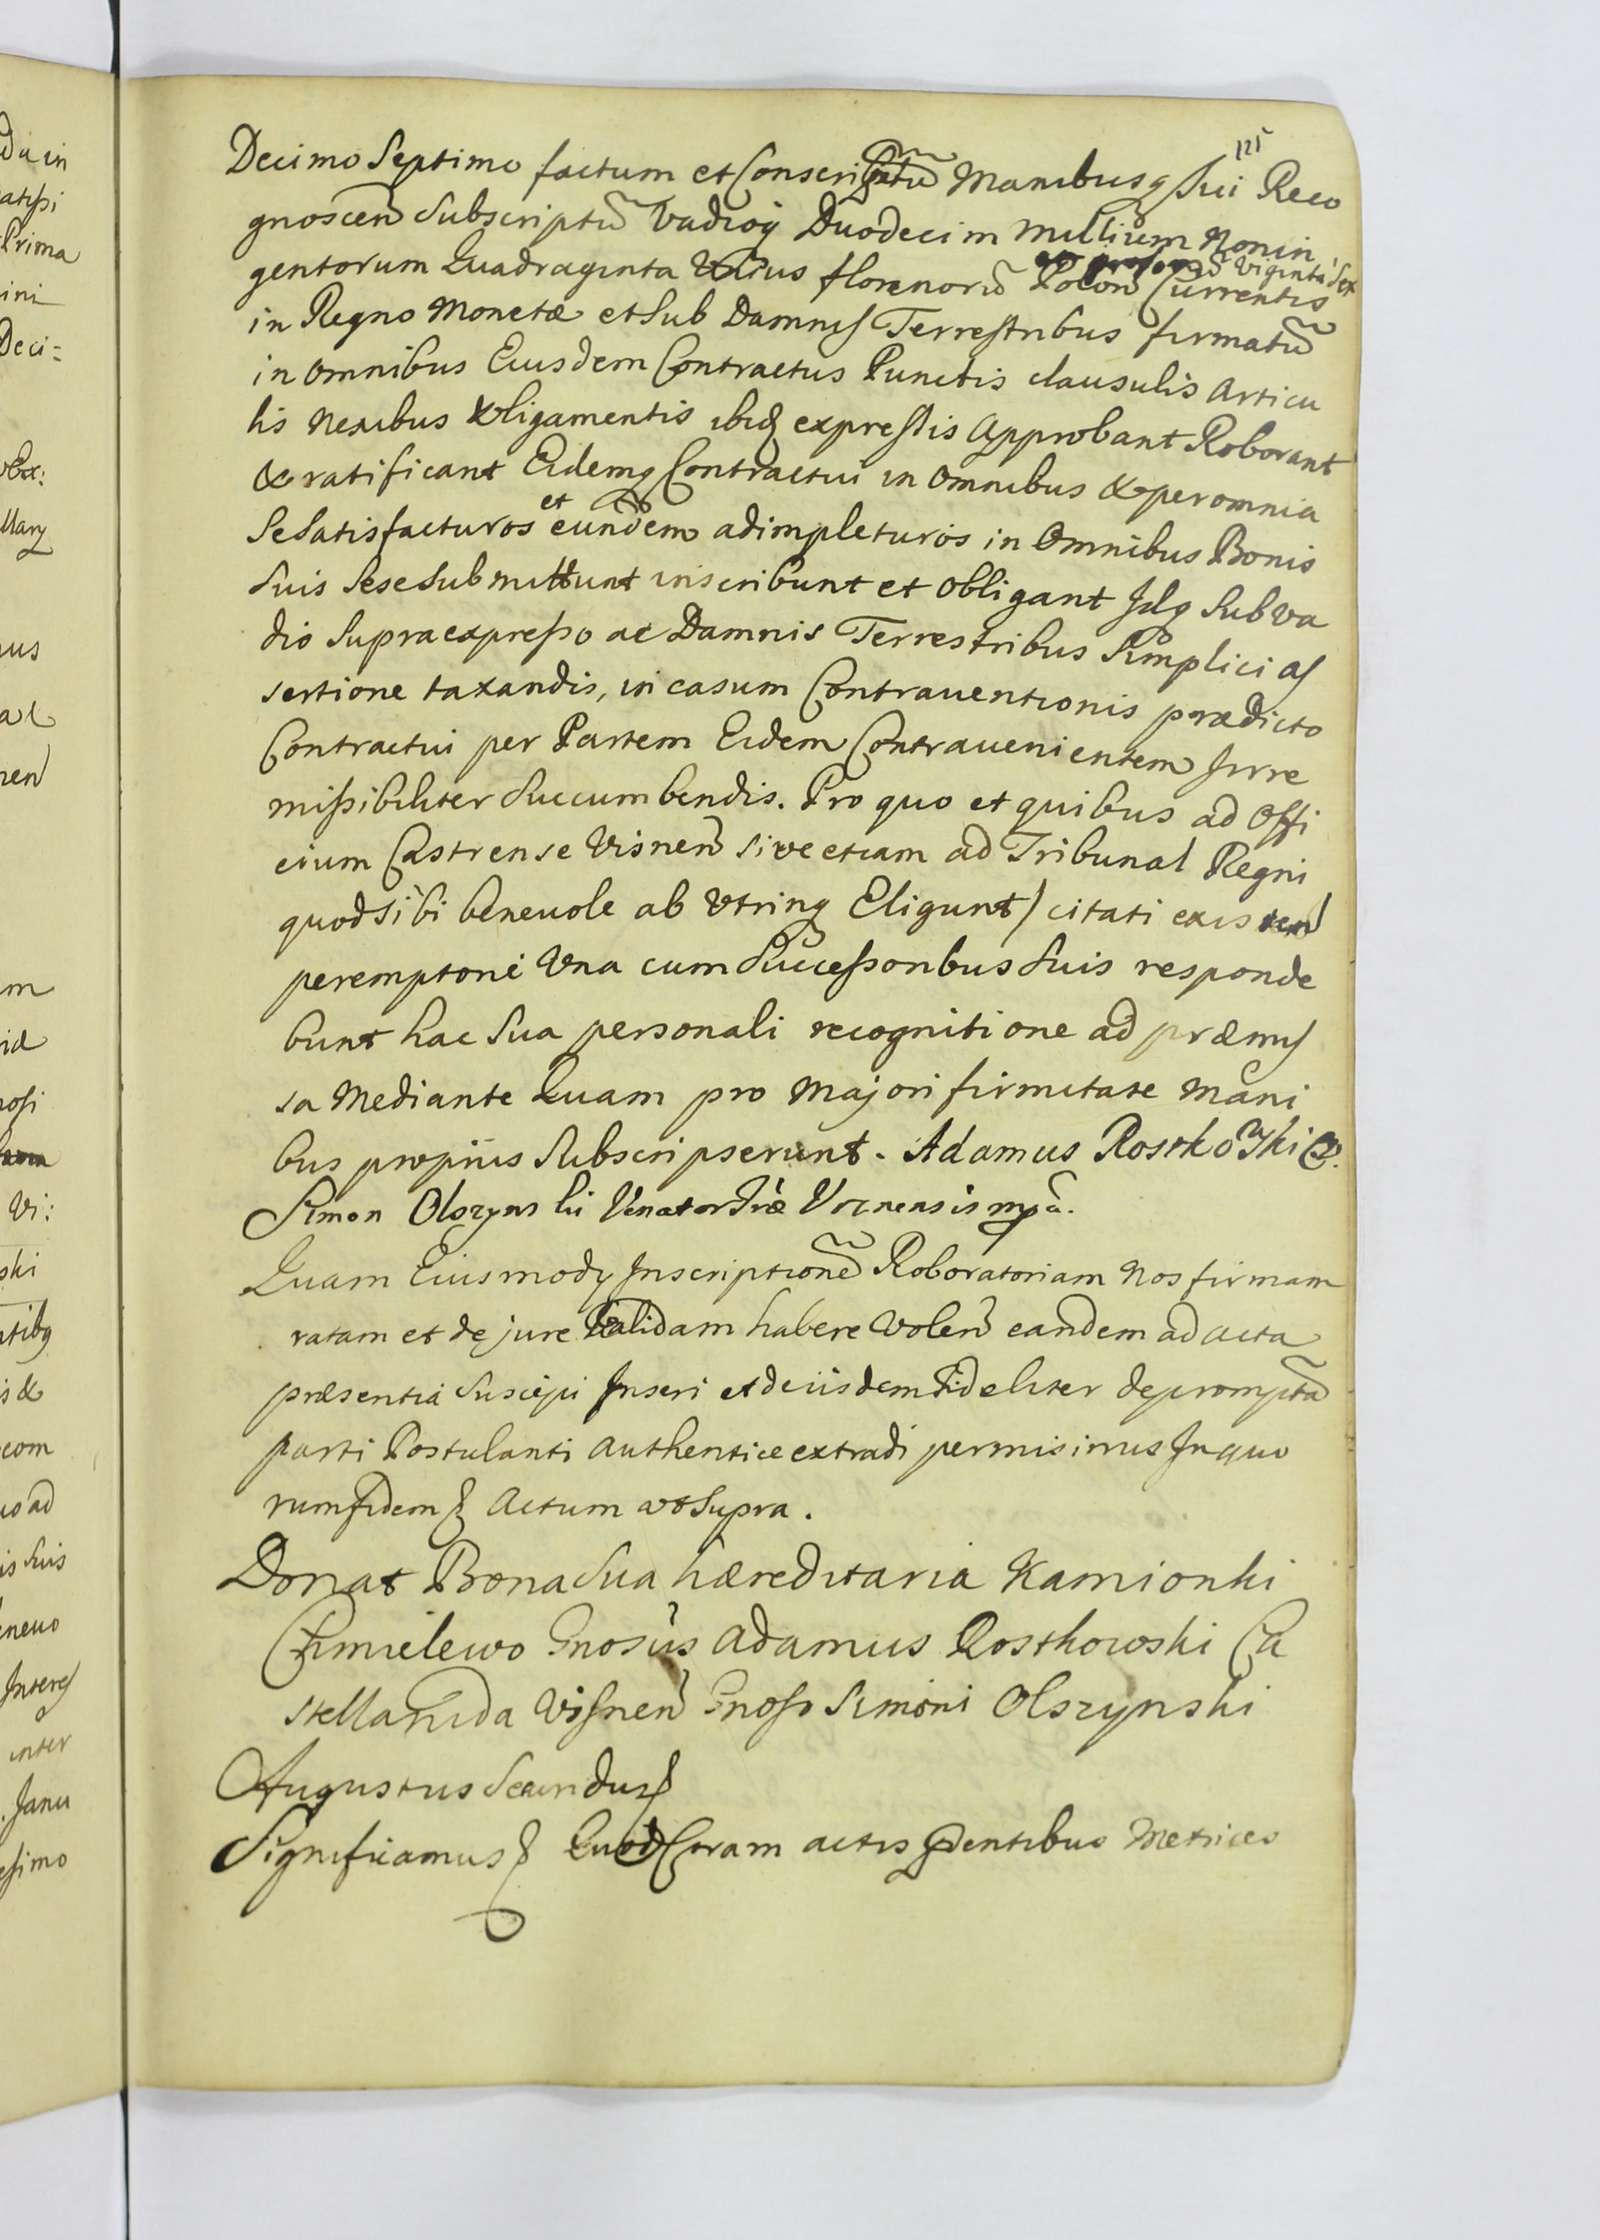 121
Decimo Septimo factum et Conscriptũ Manibusq Sui Reco
gnoscen Subscriptũ Vadioq Duodecim Millium Nonin
gentorum Quadraginta Unius florenorũ Polon Currentis
Viginti Sex
in Regno Monetæ et Sub Damnis Terrestribus firmatũ
in Omnibus Eiusdem Contractus Punctis clausulis Articu
lis Nexibus & ligamentis ibid expressis Approbant Roborant
& ratificant Eidemq Contractui in Omnibus & per omnia
Se Satisfacturos et eundem adimpleturos in Omnibus Bonis
Suis Sese Submittunt inscribunt et Obligant Idq Sub va
dio Supraexpresso ac Damnis Terrestribus Simplici as
sertione taxandis, in casum Contrauentionis prædicto
Contractui per Partem Eidem Contrauenientem Irre
missibiliter Succumbendis. Pro quo et quibus ad Offi
cium Castrense Visnen sive etiam ad Tribunal Regni
quod sibi beneuole ab Utrinq Eligunt) citati existen
peremptorie Una cum Successoribus Suis responde
bunt hac Sua personali recognitione ad præmis
sa Mediante Quam pro Majori firmitate Mani
bus propriis Subscripserunt. Adamus Rostkowski C.
Simon Olszynski Venator Træ Viznensis mpa.
Quam Eiusmody Inscriptionẽ Roboratoriam Nos firmam
ratam et de jure Validam habere Volen eandem ad acta
præsentia Suscipi Inseri et de iisdem Fideliter depromptã
parti Postulanti Authentice extradi permisimus In quo
rum fidem & Actum ut Supra.
Donat Bona Sua hæreditaria Kamionki
Chmielewo Gnosus Adamus Rostkowski Ca
stellanida Visnen Gnoso Simoni Olszynski
Augustus Secundus &
Significamus & Quod Coram actis pntibus Metrices